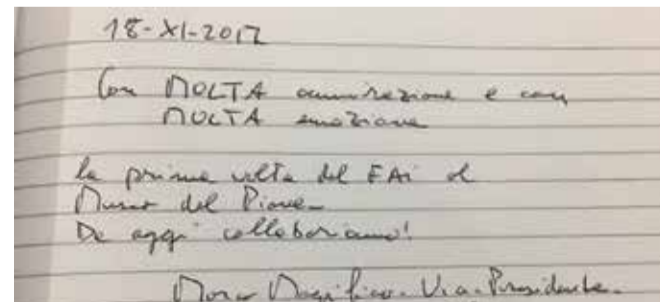 18-XI-2017
Con MOLTA ammirazione e con
MOLTA emozione
la prima volta del FAi al
Museo del Piave.
Da oggi collaboriamo!
Marco Magnifico. Vice-Presidente.